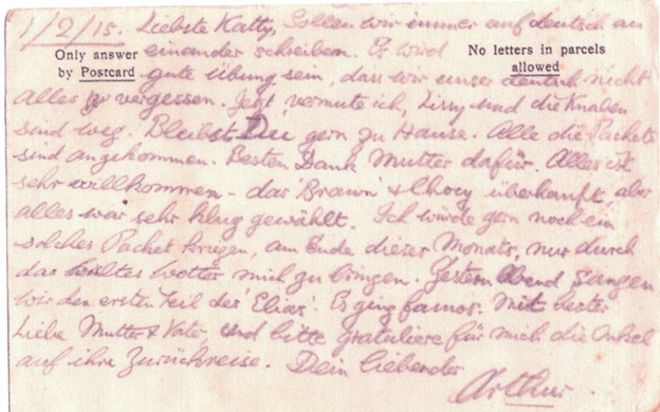 1/2/15. Liebste Katty, Sollen wir immer auf deutsch an
Only answer by Postcard
einander schreiben. Es wird
No letters in parcels allowed
gute Übung sein, dass wir unser deutsch nicht
alles zu vergessen. Jetzt, vermute ich, Lissy und die Knaben
sind weg. Bleibst Du gern zu Hause. Alle die Packete
sind angekommen. Besten Dank Mutter dafür. Alles ist
sehr willkommen - das 'Brawn' & Chocy überhauft, aber
alles war sehr klug gewählt. Ich würde gern noch ein
solches Packet kriegen, am Ende dieser Monats, nur durch
das kaltes wetter mich zu bringen. Gestern Abend sangen
wir den ersten Teil des 'Elias'. Es ging famos. Mit bester
Liebe Mutter & Vater, und bitte gratuliere für mich die Onkel
auf ihre Zurückreise. Dein liebender
Arthur.